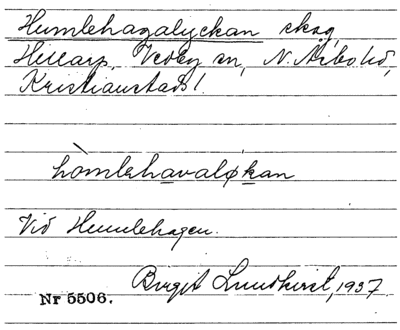 Humlehagalyckan skog,
Hillarp, Vedby sn, N. Åsbo hd,
Kristianstads l.
hòmlehavaløkan
Vid Humlehagen.
Birgit Lundkvist, 1937
Nr 5506.